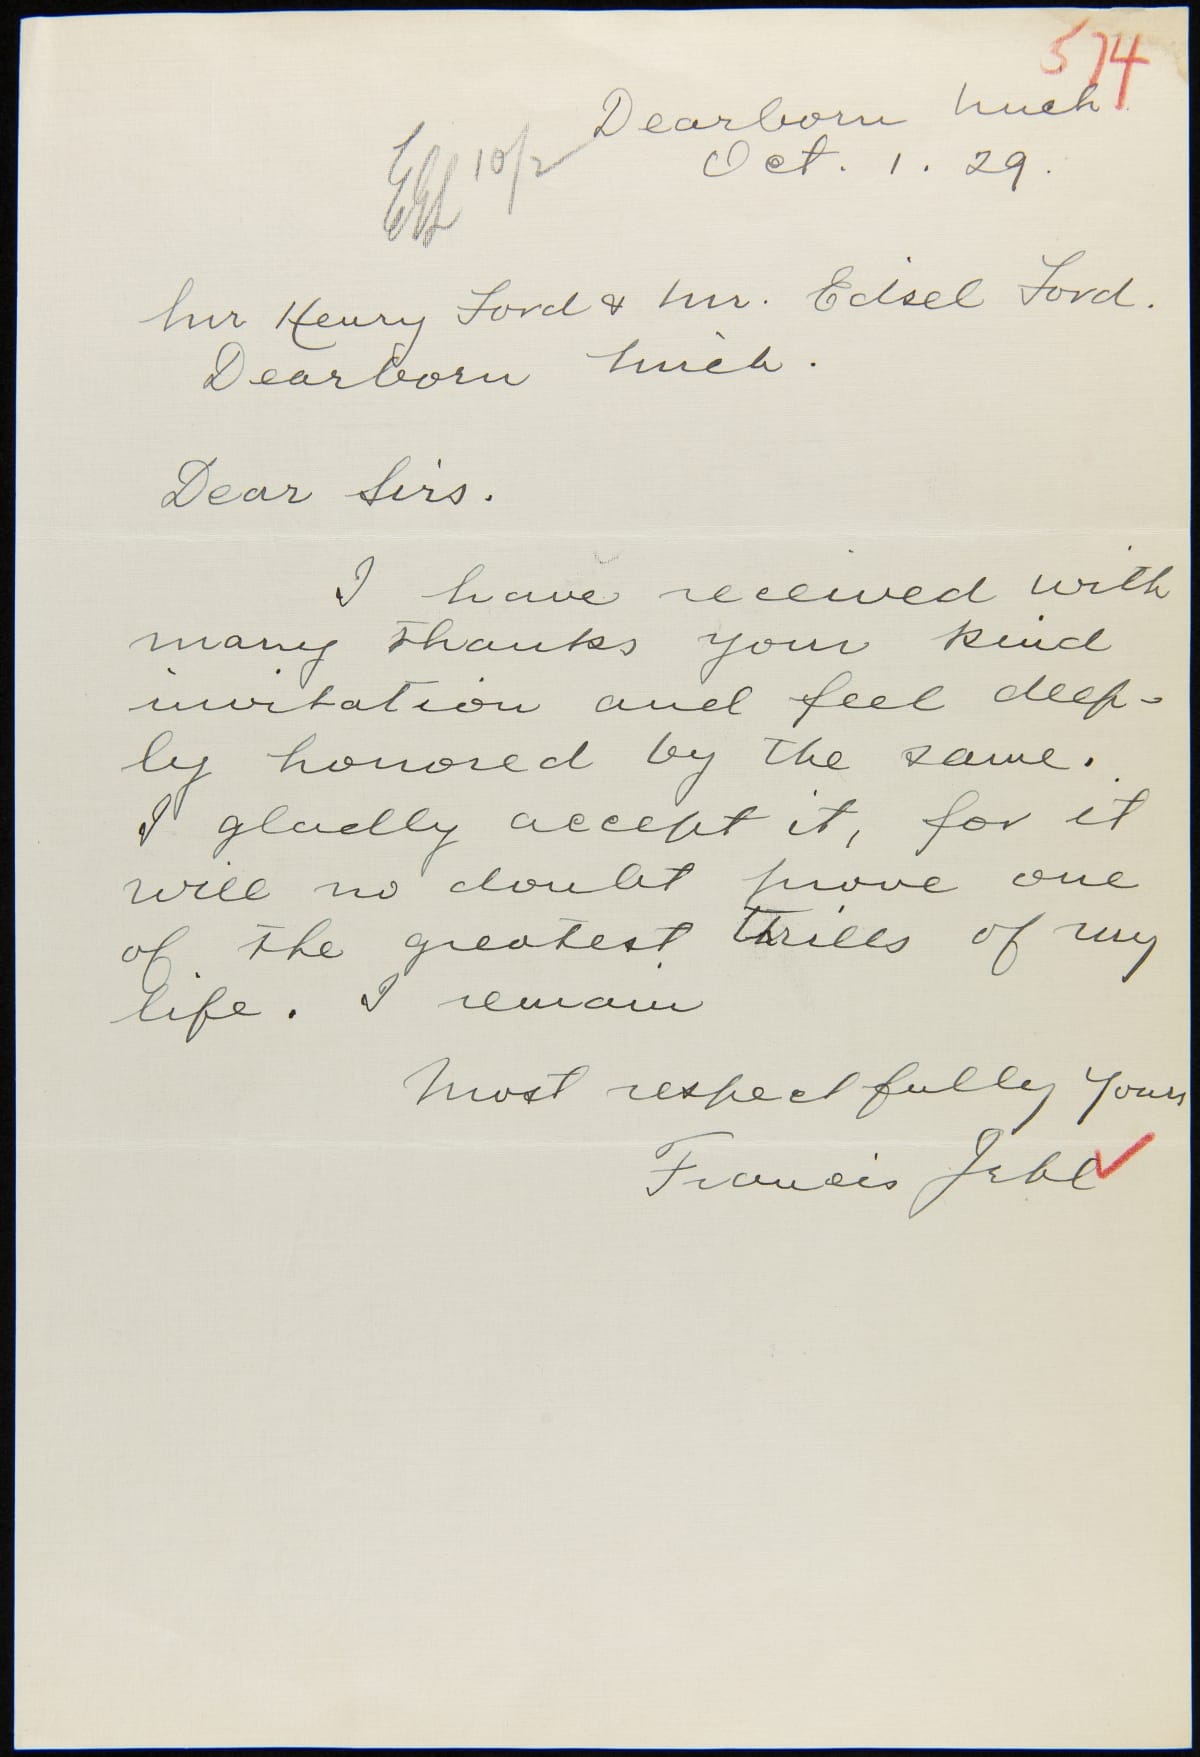 574
Dearborn Mich.
10/2
Oct. 1. 29.
Mr Henry Ford & Mr. Edsel Ford.
Dearborn Mich.
Dear Sirs.
I have received with
many thanks your kind
invitation and feel deep-
ly honored by the same.
I gladly accept it, for it
will no doubt prove one
of the greatest thrills of my
life. I remain
Most respectfully yours
Francis Jehl